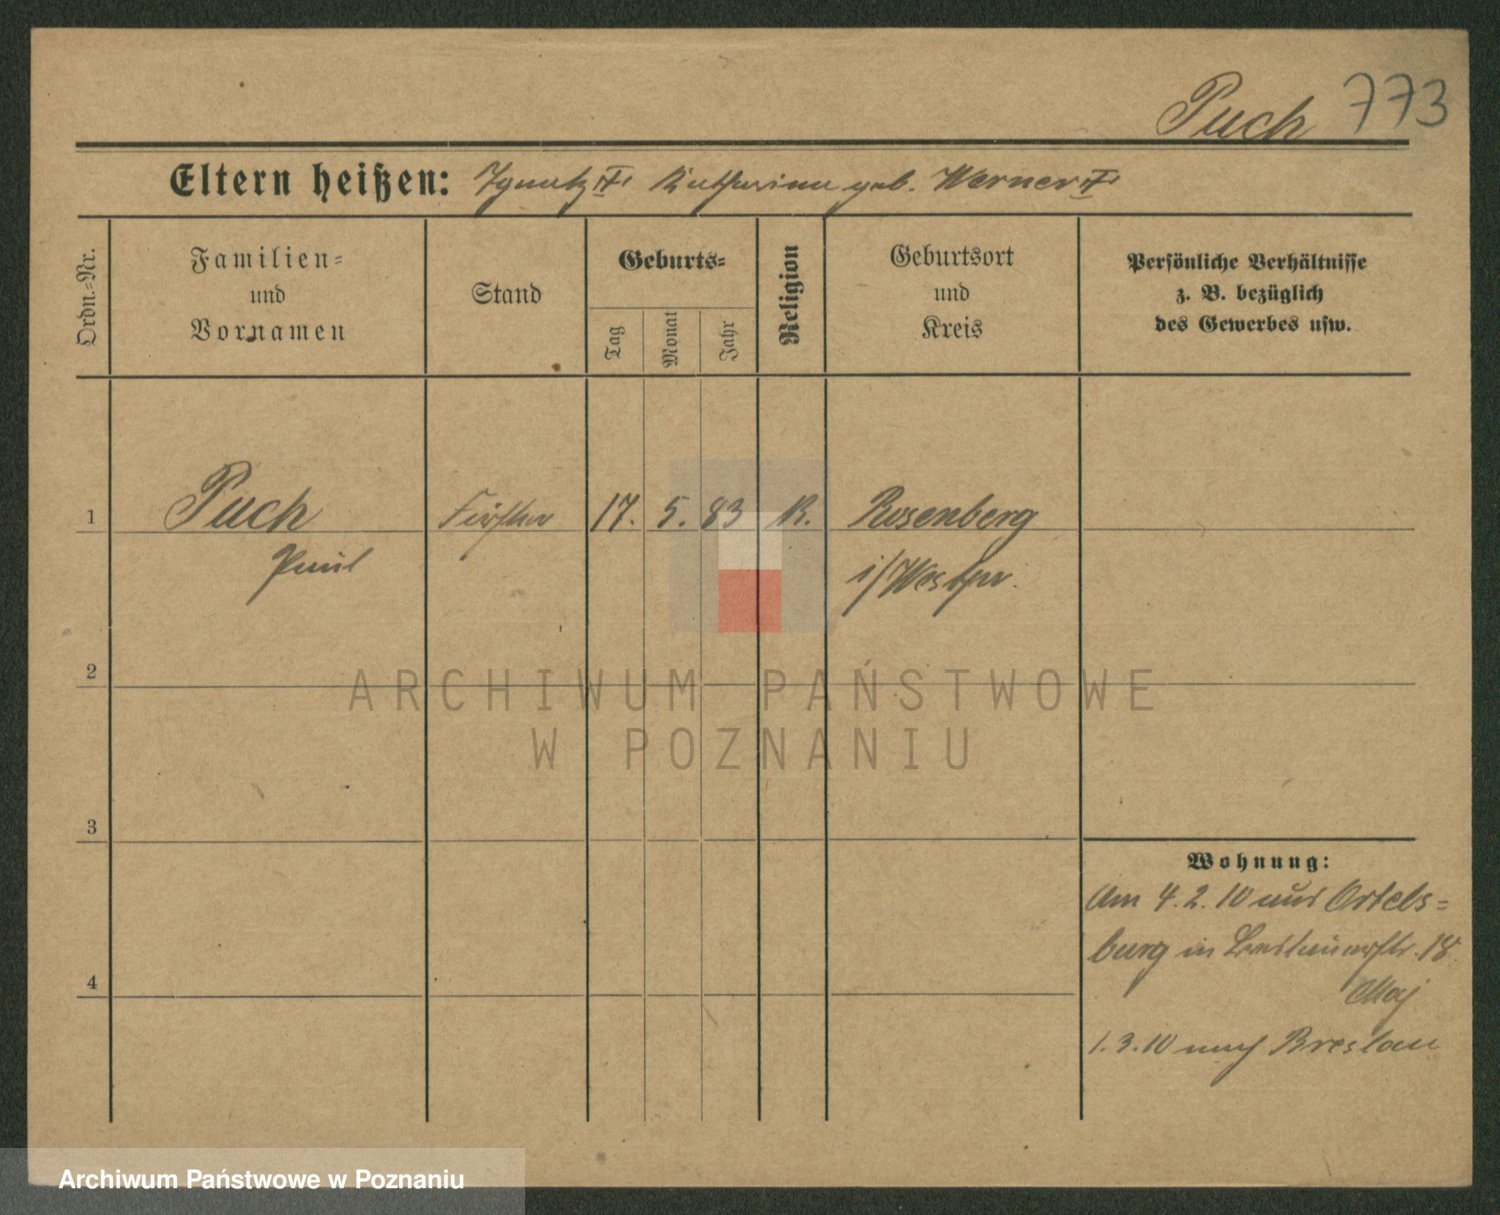 Puch 773
Eltern heißen: Ignatz †, Katharina geb. Werner †
Ordn.-Nr.
Familien-
und
Vornamen
Stand
Geburts-
Tag
Monat
Jahr
Religion
Geburtsort
und
Kreis
Persönliche Verhältnisse
z. B. bezüglich
des Gewerbes usw.
1 Puch 17. 5. 83 K. Rosenberg
Paul i/Westpr.
2
ARCHIWUM PAŃSTWOWE
W POZNANIU
3
Wohnung:
Am 4.2.10 aus Ortels-
burg in 18
4
1.3.10 nach Breslau
Archiwum Państwowe w Poznaniu